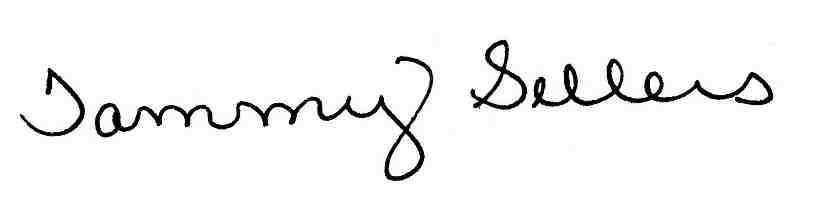 Tammy Sellers